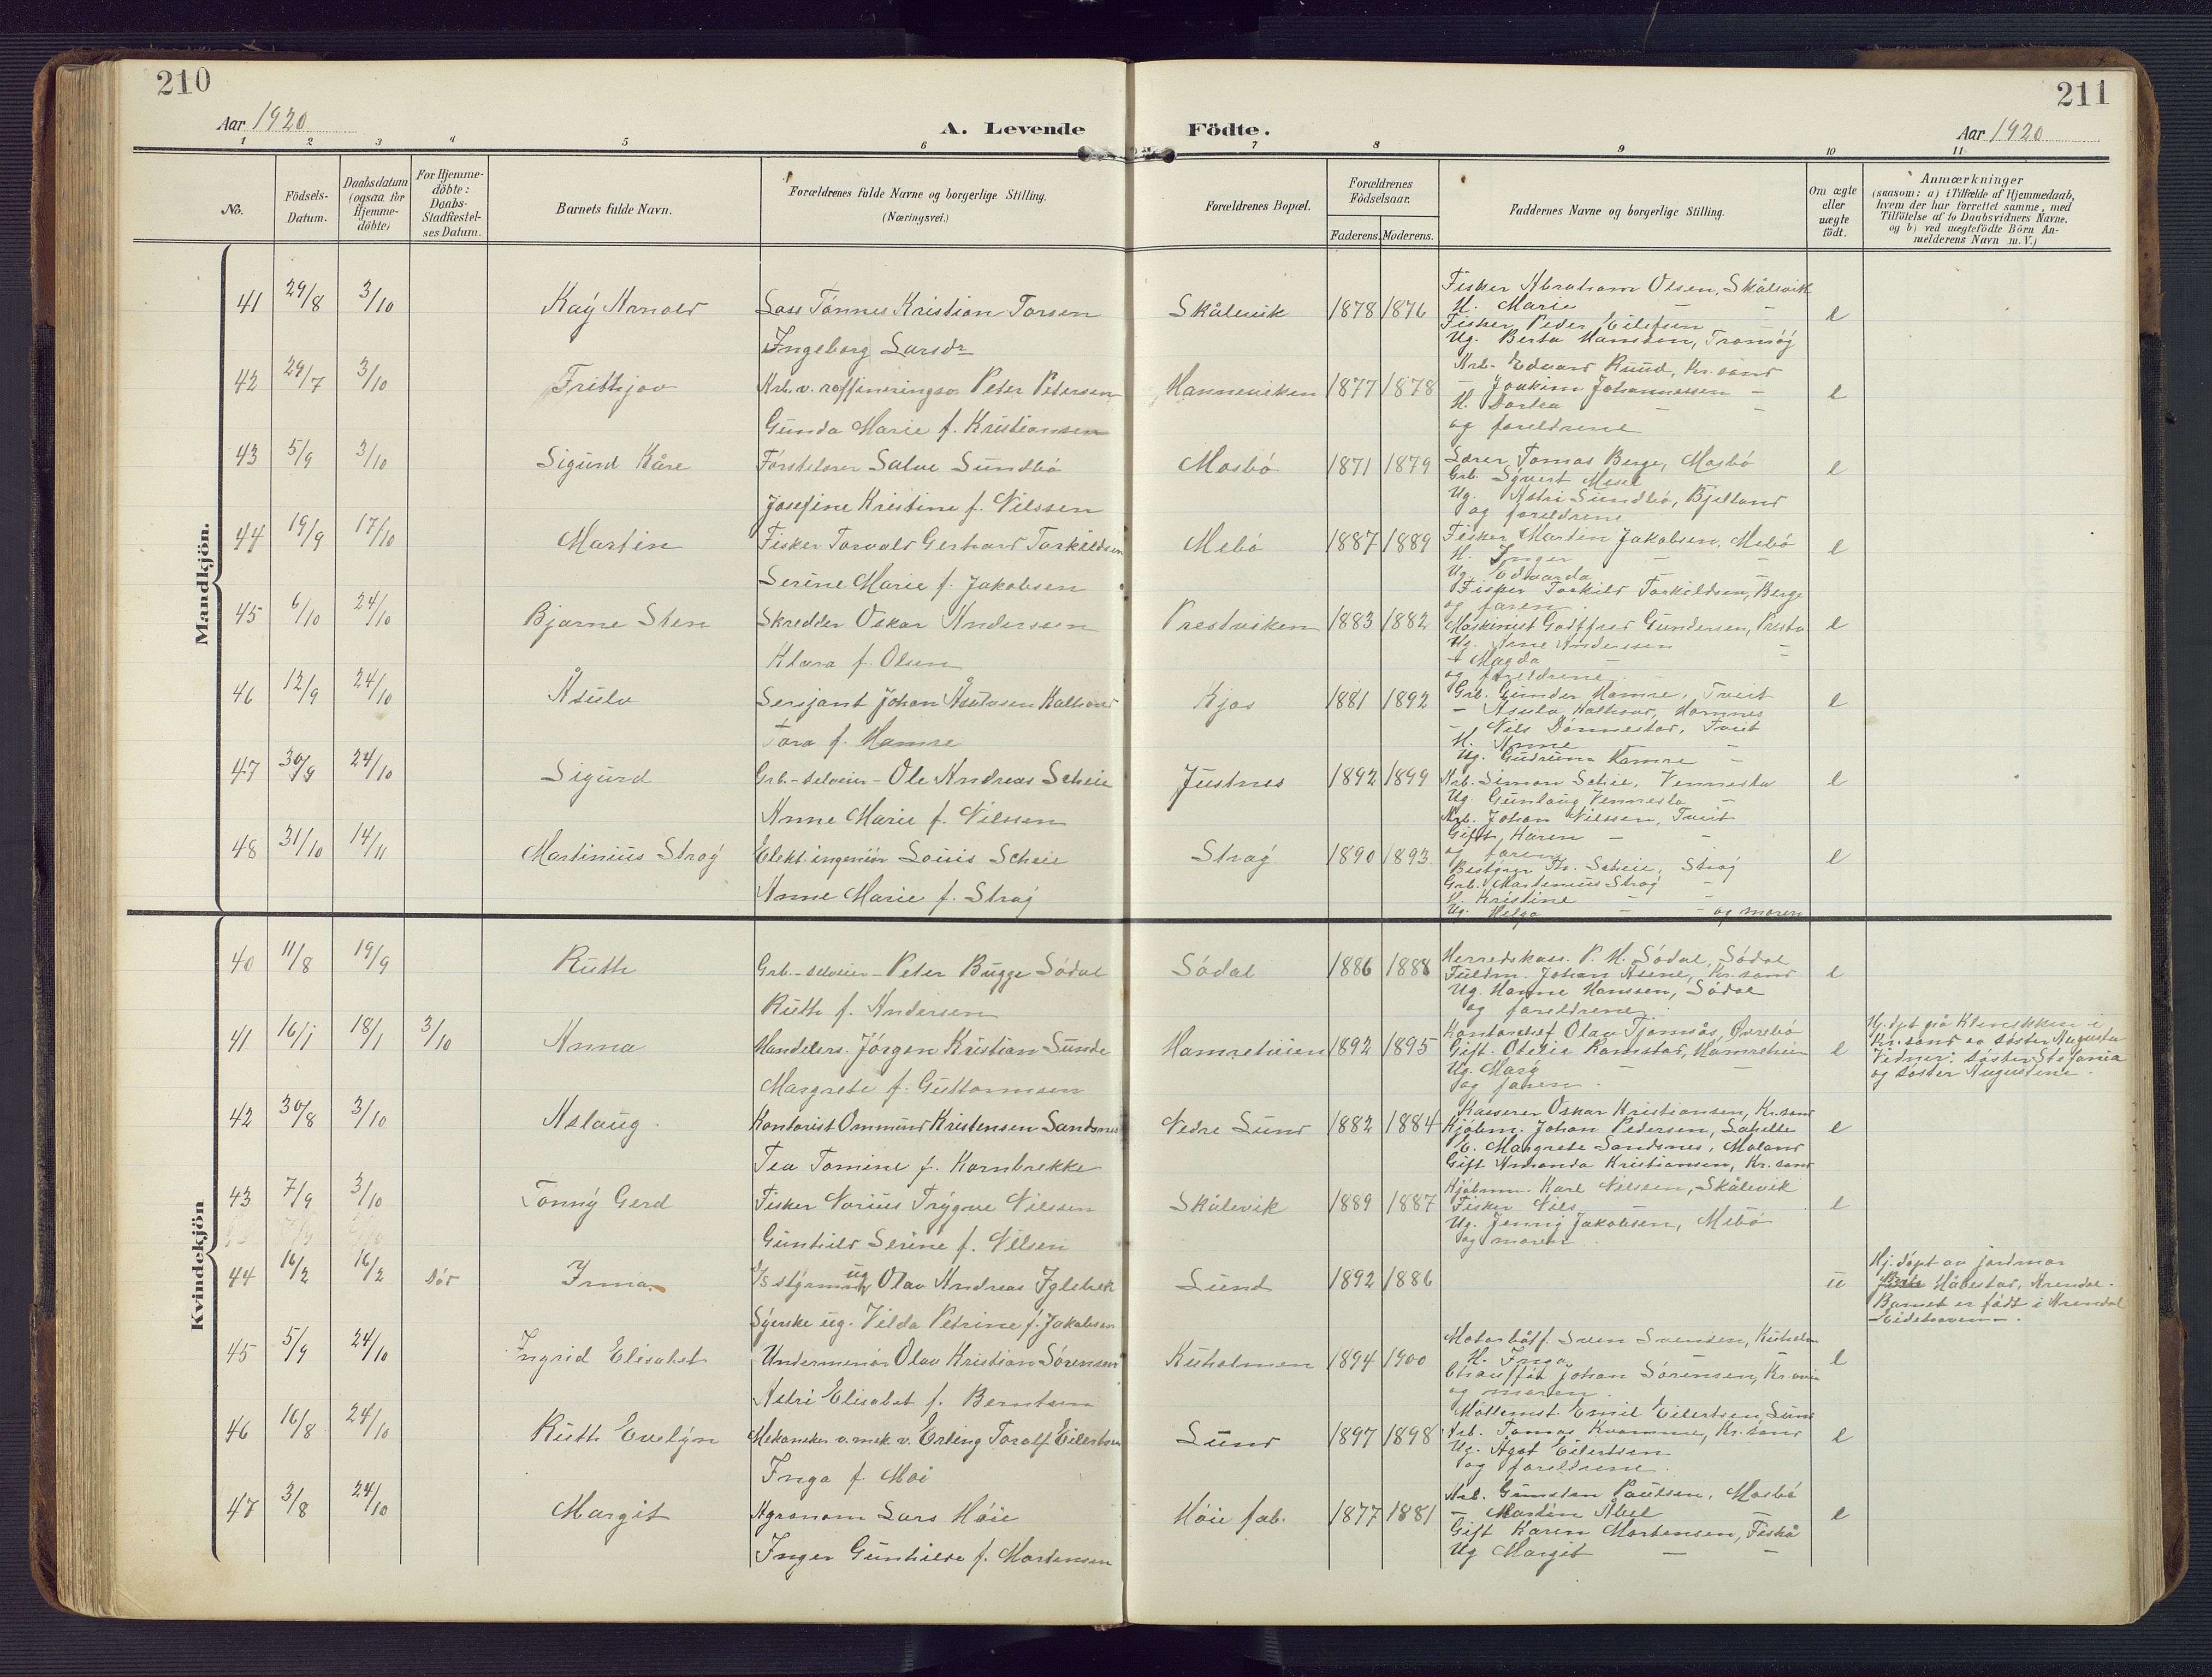 210
Aar 1920
A. Levende
Födte.
211
Aar 1920
1 2 3 4 5 6 7 8 9 10 11
No.
Födsels-Datum.
Daabsdatum (ogsaa for Hjemme-döbte)
For Hjemme-döbte: Daabs-Stadfæstel-ses Datum.
Barnets fulde Navn.
Forældrenes fulde Navne og borgerlige Stilling.
(Næringsvei.)
Forældrenes Bopæl.
Forældrenes Födselsaar.
Faderens. Moderens.
Faddernes Navne og borgerlige Stilling.
Om ægte eller uægte födt.
Anmærkninger
(saasom: a) i Tilfælde af Hjemmedaab,
hvem der har forrettet samme, med
Tilföielse af to Daabsvidners Navne.
og b) ved uægtefödte Börn An-
melderens Navn m. V.)
Mandkjön.
41 29/8 3/10 Kay Arnold Loss Tönnes Kristian Torsen Skålevik 1878 1876 e
Ingeborg Larsdr
Fisker Abraham Olsen, Skålevik
H. Marie — —
Fisker Peder Eilefsen —
Ug. Berta Hansen, Tromöy
42 29/7 3/10 Frithjov Arb. v. raffineringsv. Peter Petersen Hanneviken 1877 1878 e
Gunda Marie f. Kristiansen
Arb. Edvard Ruud, Kr.sand
— Joakim Johannessen —
H. Dortea — —
og foreldrene
43 5/9 3/10 Sigurd Kåre Förstelærer Salve Sundbö Mosbö 1871 1879 e
Josefine Kristine f. Nilssen
Lærer Tomas Berge, Mosbö
Grb. Syvert Mesel
Ug. Astri Sundbö, Bjelland
og foreldrene
44 19/9 17/10 Martin Fisker Torvald Gerhard Torkildsen Mebö 1887 1889 e
Serine Marie f. Jakobsen
Fisker Martin Jakobsen, Mebö
H. Inger — —
Ug. Edvarda — —
Fisker Torkild Torkildsen, Berge
og faren.
45 6/10 24/10 Bjarne Sten Skredder Oskar Anderssen Prestviken 1883 1882 e
Klara f. Olsen
Maskinist Godtfred Gundersen, Prestv.
Ug. Arne Anderssen —
+ Magda — —
og foreldrene.
46 12/9 24/10 Åsulv Sersjant Johan Åsulvsen Kalleod Kjos 1881 1892 e
Tora f. Hamre
Grb. Gunder Hamre, Tveit
— Nils Dönnestad, Tveit
H. Anne —
Ug. Gudrun Hamre —
47 30/9 24/10 Sigurd Grb.-selveier- Ole Andreas Scheie Justnes 1892 1899 e
Anne Marie f. Nilssen
Arb. Simon Scheie, Vennesla
Ug. Gunlaug Vennesla —
Arb. Johan Nilssen, Tveit
Gift, Karen — —
og faren
48 31/10 14/11 Martinius Stray Elekt. ingeniör Louis Scheie Stray 1890 1893 e
Anne Marie f. Stray
Bestyrer Th. Scheie, Stray
Grb. Martinius Stray —
H. Kristine — —
Ug. Helga — — og moren
Kvindekjön
40 11/8 19/9 Ruth Grb.-selveier- Peter Bugge Södal Södal 1886 1888 e
Ruth f. Andersen
Herredskass. P. H. Södal, Södal
Fuldm. Johan Åsene, Kr.sand
Ug. Hanne Hanssen, Södal
og foreldrene.
41 16/1 18/1 3/10 Anna Handelsr. Jörgen Kristian Sunde Hamreheien 1892 1895 e
Margrete f. Guttormsen
Kontorchef Olav Tjomsås, Övrebö
Gift. Otelie Ramstad, Hamreheien
Ug. Mary — —
og faren.
Hj. dpt på Klinikken i
Kr.sand av söster Augusta
Vidner: söster Stefania
og söster Augustine.
42 30/8 3/10 Aslaug. Kontorist Ommund Kristensen Sandsnes Nedre Lund 1882 1884 e
Tea Tomine f. Kornbrekke
Kasserer Oskar Kristiansen, Kr.sand
Kjöbm. Johan Pedersen, Lahelle
E. Margrete Sandsnes, Moland
Gift Amanda Kristiansen, Kr.sand
43 7/9 3/10 Tönny Gerd Fisker Norius Trygve Nilssen Skålevik 1889 1887 e
Gunhild Serine f. Nilsen
Kjöbmn. Karl Nilssen, Skålevik
Fisker Nils — —
Ug. Jenny Jakobsen, Mebö
og moren.
44 16/2 16/2 Död Irma D/s styrmann ug Olav Andreas Iglebæk Lund 1892 1886 u
Syerske ug. Vilda Petrine f. Jakobsen
Hj. döpt av jordmor
Håbestad, Arendal.
Barnet er födt i Arendal
45 5/9 24/10 Ingrid Elisabet Underminör Olav Kristian Sörensen Kuholmen 1894 1900 e
Astri Elisabet f. Berntsen
Motorbåtf. Sven Svensen, Kuholm
H. Inga
Chauffør Johan Sörensen, Kr.sand
og moren.
46 16/8 24/10 Ruth Evelyn Mekaniker v. mek v. Erling Toralf Eilertsen Lund 1897 1898 e
Inga f. Moi
Möllemst. Emil Eilertsen, Lund
Arb. Tomas Kvamme, Kr.sand
Ug. Ågot Eilertsen
og foreldrene.
47 3/8 24/10 Margit Agronom Lars Höie Höie fab. 1877 1881 e
Inger Gunhilde f. Mortensen
Arb. Gunsten Paulsen, Mosbö
— Martin Abel —
Gift Karen Mortensen, Fiskå
Ug Margit — —